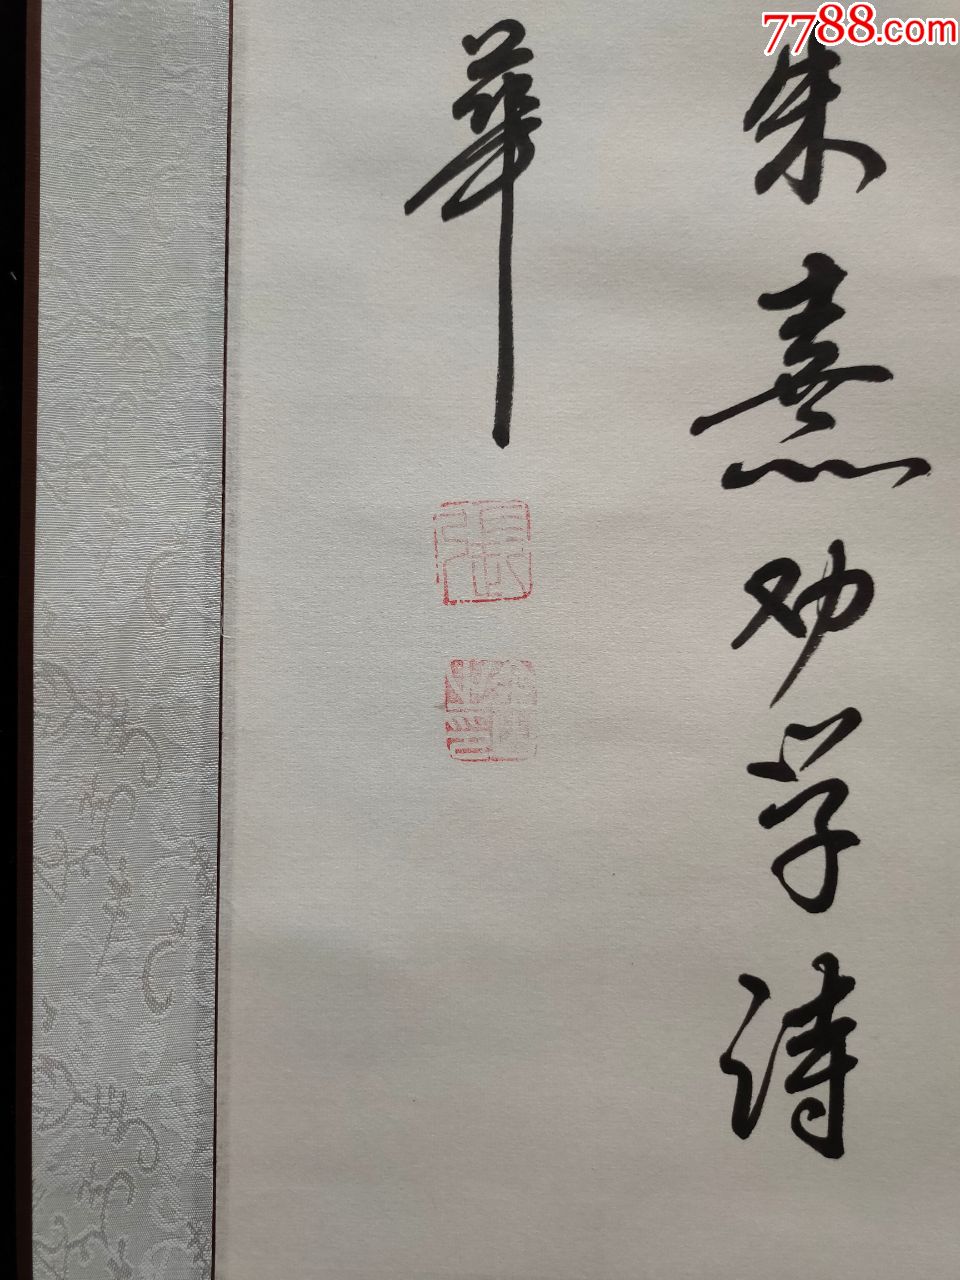 7788.com
朱熹劝学诗
華
張